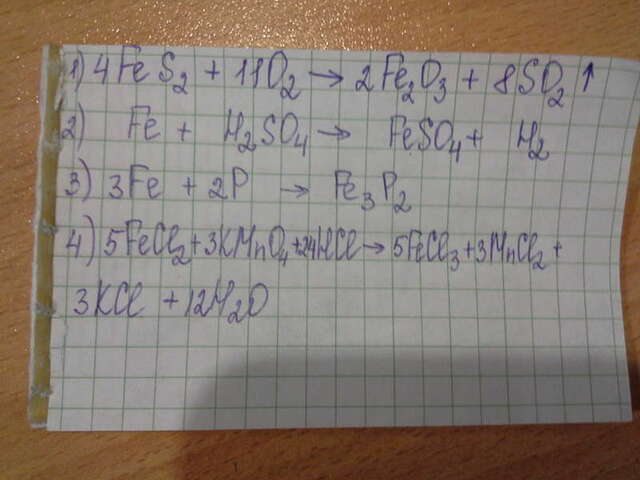 1) 4FeS₂ + 11O₂ → 2Fe₂O₃ + 8SO₂ ↑
2) Fe + H₂SO₄ → FeSO₄ + H₂
3) 3Fe + 2P → Fe₃P₂
4) 5FeCl₂ + 3KMnO₄ + 24HCl → 5FeCl₃ + 3MnCl₂ +
3KCl + 12H₂O